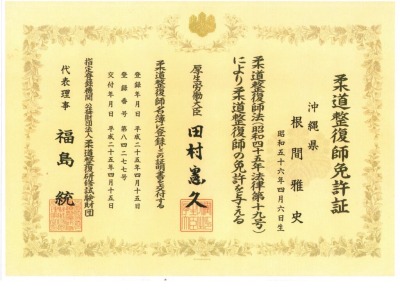 柔道整復師免許証
沖縄県
根間雅史
昭和五十六年四月六日生
柔道整復師法(昭和四十五年法律第十九号)
により柔道整復師の免許を与える
厚生労働大臣 田村憲久
柔道整復師名簿に登録しこの証明書を交付する
登録年月日 平成二十五年四月十五日
登録番号 第八四二七七号
交付年月日 平成二十五年四月十五日
指定登録機関 公益財団法人柔道整復研修試験財団
代表理事 福島統